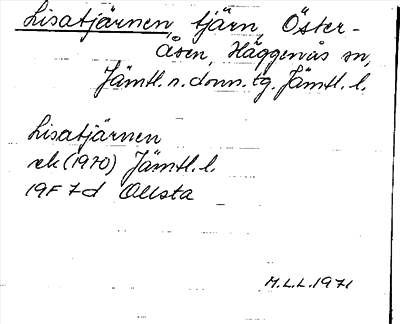 Lisatjärnen, tjärn, Öster-
åsen, Häggenås sn,
Jämtl. n. doms. tg. Jämtl. l.
Lisatjärnen
ek (1970) Jämtl. l.
19F 7d Ollsta
M.L.L. 1971